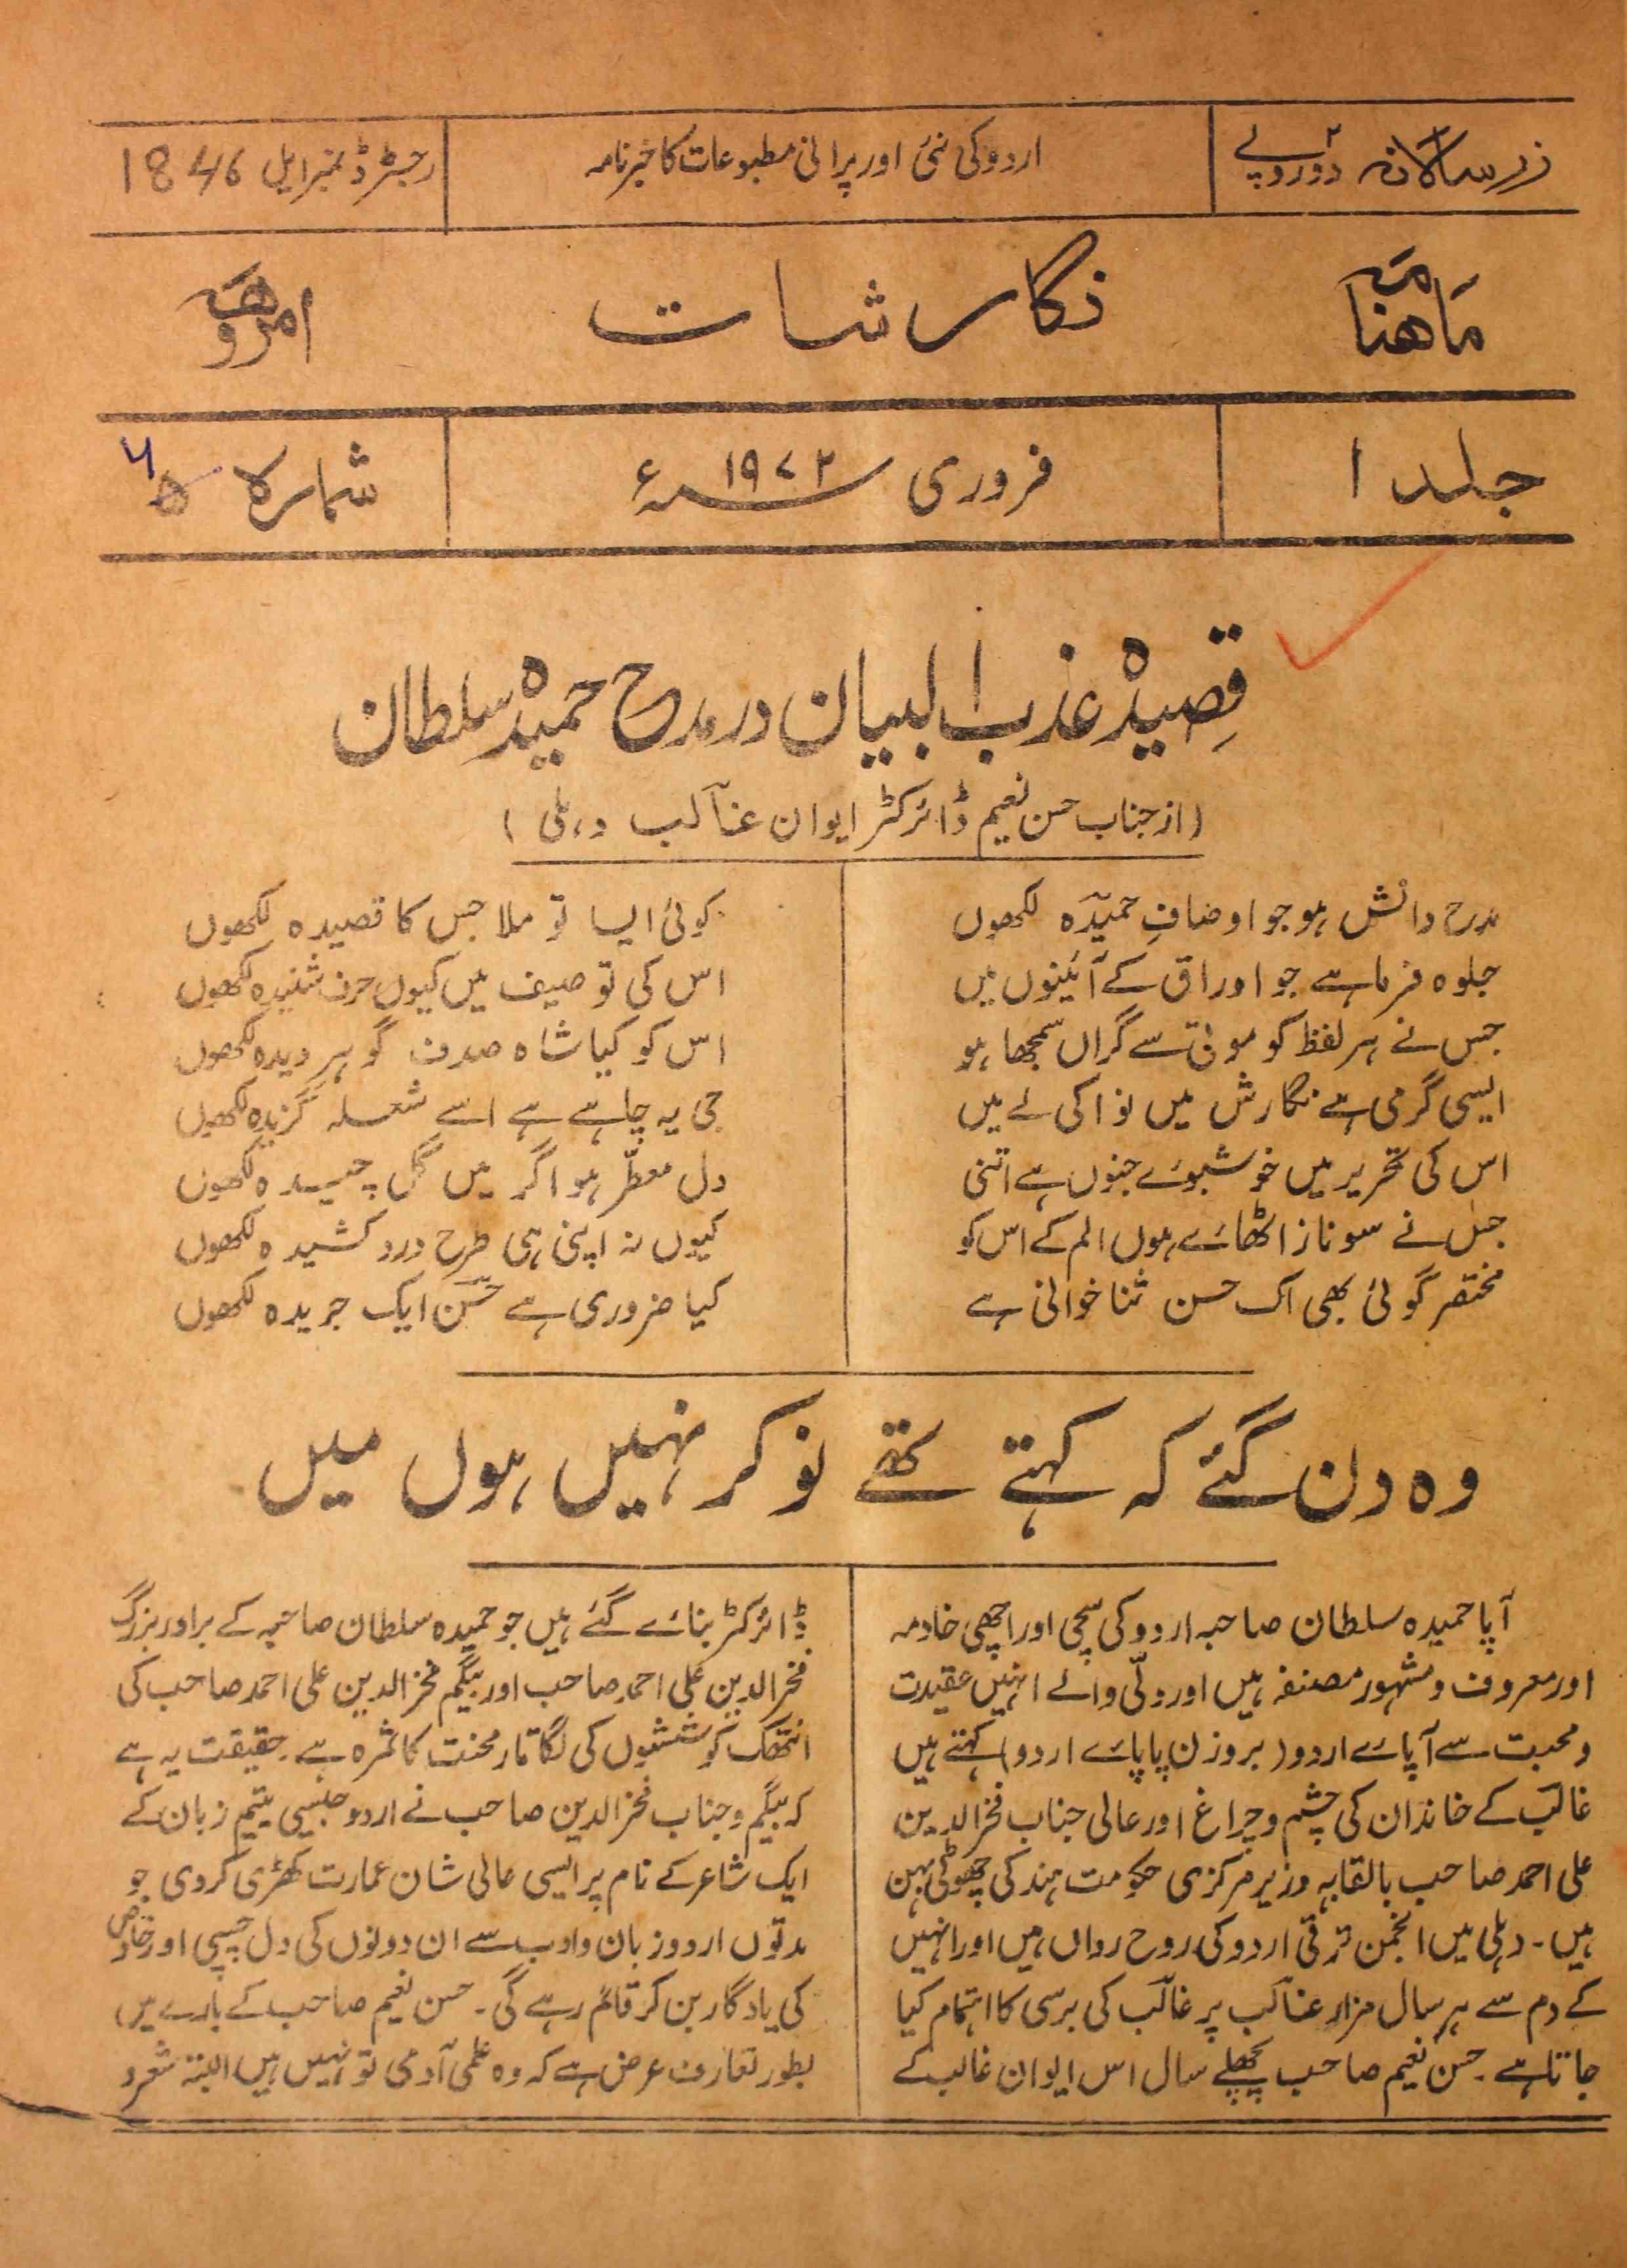 زر سالانہ ۲ دو روپے
اردو کی نئی اور پرانی مطبوعات کا خبرنامہ
رجسٹرڈ نمبر ایل 1846
ماهنامہ
نگارشات
امروهہ
جلد ۱
فروری ۱۹۷۲ء
شمارہ ۵ ۶
قصیدہ عذب البیان در مدح حمیدہ سلطان
(از جناب حسن نعیم ڈائرکٹر ایوان غالب دہلی)
مدح دانش ہو جو اوصافِ حمیدہ لکھوں
کوئی ایسا تو ملا جس کا قصیدہ لکھوں
جلوہ فرما ہے جو اوراق کے آئینوں میں
اس کی توصیف میں کیوں حرف شنیدہ لکھوں
جس نے ہر لفظ کو موتی سے گراں سمجھا ہو
اس کو کیا شاہ صدف گوہر دیدہ لکھوں
ایسی گرمی ہے نگارش میں نوا کی لے میں
جی یہ چاہے ہے اسے شعلہ گزیدہ لکھوں
اس کی تحریر میں خوشبوئے جنوں ہے اتنی
دل معطّر ہو اگر میں گل چیدہ لکھوں
جس نے سو ناز اٹھائے ہوں الم کے اس کو
کیوں نہ اپنی ہی طرح درد کشیدہ لکھوں
مختصر گوئی بھی اک حسن ثنا خوانی ہے
کیا ضروری ہے حسن ایک جریدہ لکھوں
وہ دن گئے کہ کہتے تھے نوکر نہیں ہوں میں
آپا حمیدہ سلطان صاحبہ اردو کی سچی اور اچھی خادمہ
اور معروف و مشہور مصنفہ ہیں اور دلّی والے انہیں عقیدت
و محبت سے آپائے اردو (بروزن پاپائے اردو) کہتے ہیں
غالب کے خاندان کی چشم و چراغ اور عالی جناب فخر الدین
علی احمد صاحب بالقابہ وزیر مرکزی حکومت ہند کی چھوٹی بہن
ہیں۔ دہلی میں انجمن ترقی اردو کی روح رواں ہیں اور انہیں
کے دم سے ہر سال مزار غالب پر غالب کی برسی کا اہتمام کیا
جاتا ہے۔ حسن نعیم صاحب پچھلے سال اس ایوان غالب کے
ڈائرکٹر بنائے گئے ہیں جو حمیدہ سلطان صاحبہ کے برادر بزرگ
فخر الدین علی احمد صاحب اور بیگم فخر الدین علی احمد صاحب کی
انتھک کوششوں کی لگاتار محنت کا ثمرہ ہے۔ حقیقت یہ ہے
کہ بیگم و جناب فخر الدین صاحب نے اردو جیسی یتیم زبان کے
ایک شاعر کے نام پر ایسی عالی شان عمارت کھڑی کر دی جو
مدتوں اردو زبان و ادب سے ان دونوں کی دل چسپی اور خلوص
کی یادگار بن کر قائم رہے گی۔ حسن نعیم صاحب کے بارے میں
بطور تعارف عرض ہے کہ وہ علمی آدمی تو نہیں ہیں البتہ شعر و